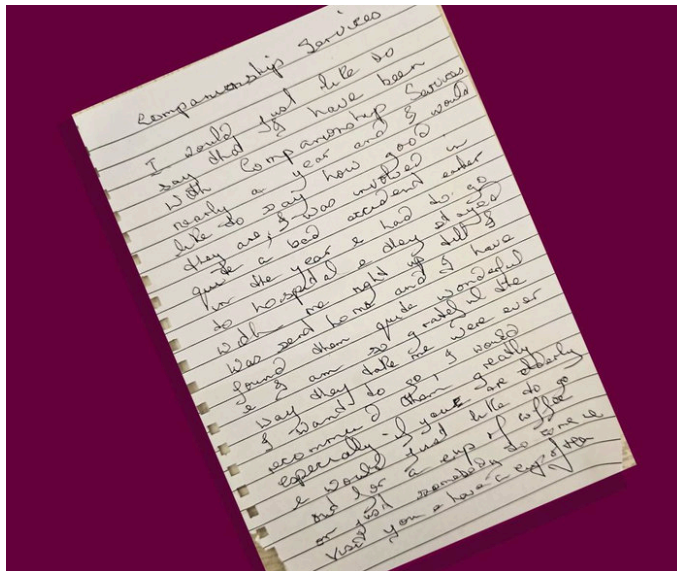 Companionship Services
I would just like to
say that I have been
with Companionship Services
nearly a year and I would
like to say how good
they are, I was involved in
quite a bad accident earlier
in the year & had to go
to hospital & they stayed
with me right up till I
was send home and I have
found them quite wonderful
& I am so grateful the
way they take me were ever
I want to go, I would
recommend them really
especially if your are elderly
& would just like to go
out for a cup of coffee
or just somebody to come &
visit you & have a cup of tea